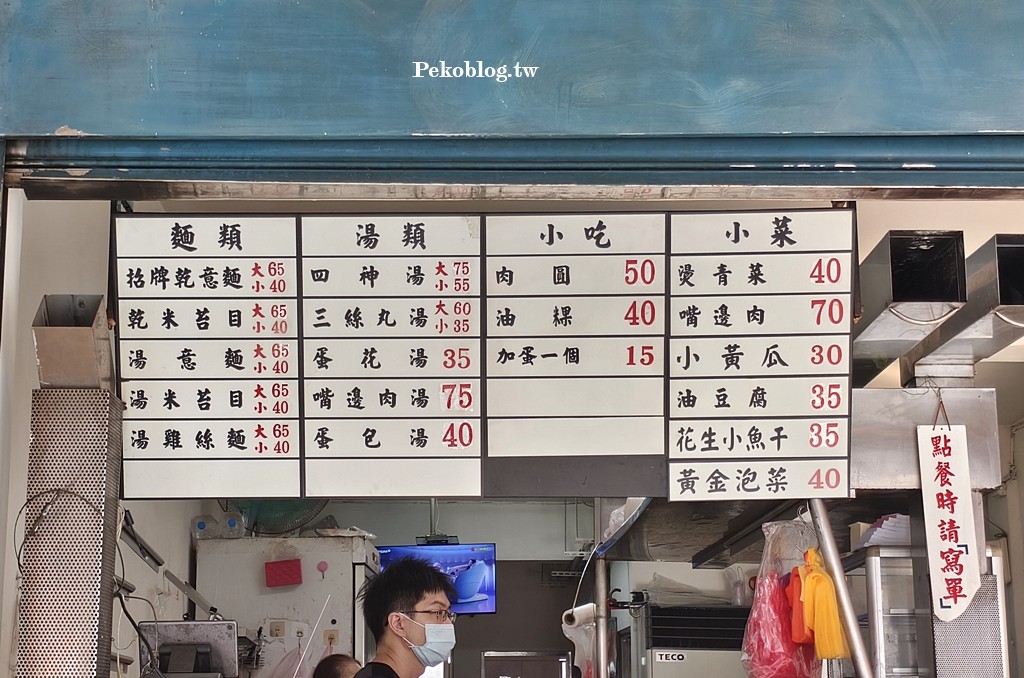 Pekoblog.tw
麵類
招牌乾意麵 大65 小40
乾米苔目 大65 小40
湯意麵 大65 小40
湯米苔目 大65 小40
湯雞絲麵 大65 小40
湯類
四神湯 大75 小55
三絲丸湯 大60 小35
蛋花湯 35
嘴邊肉湯 75
蛋包湯 40
小吃
肉圓 50
油粿 40
加蛋一個 15
小菜
燙青菜 40
嘴邊肉 70
小黃瓜 30
油豆腐 35
花生小魚干 35
黃金泡菜 40
點餐時請「寫單」
TECO